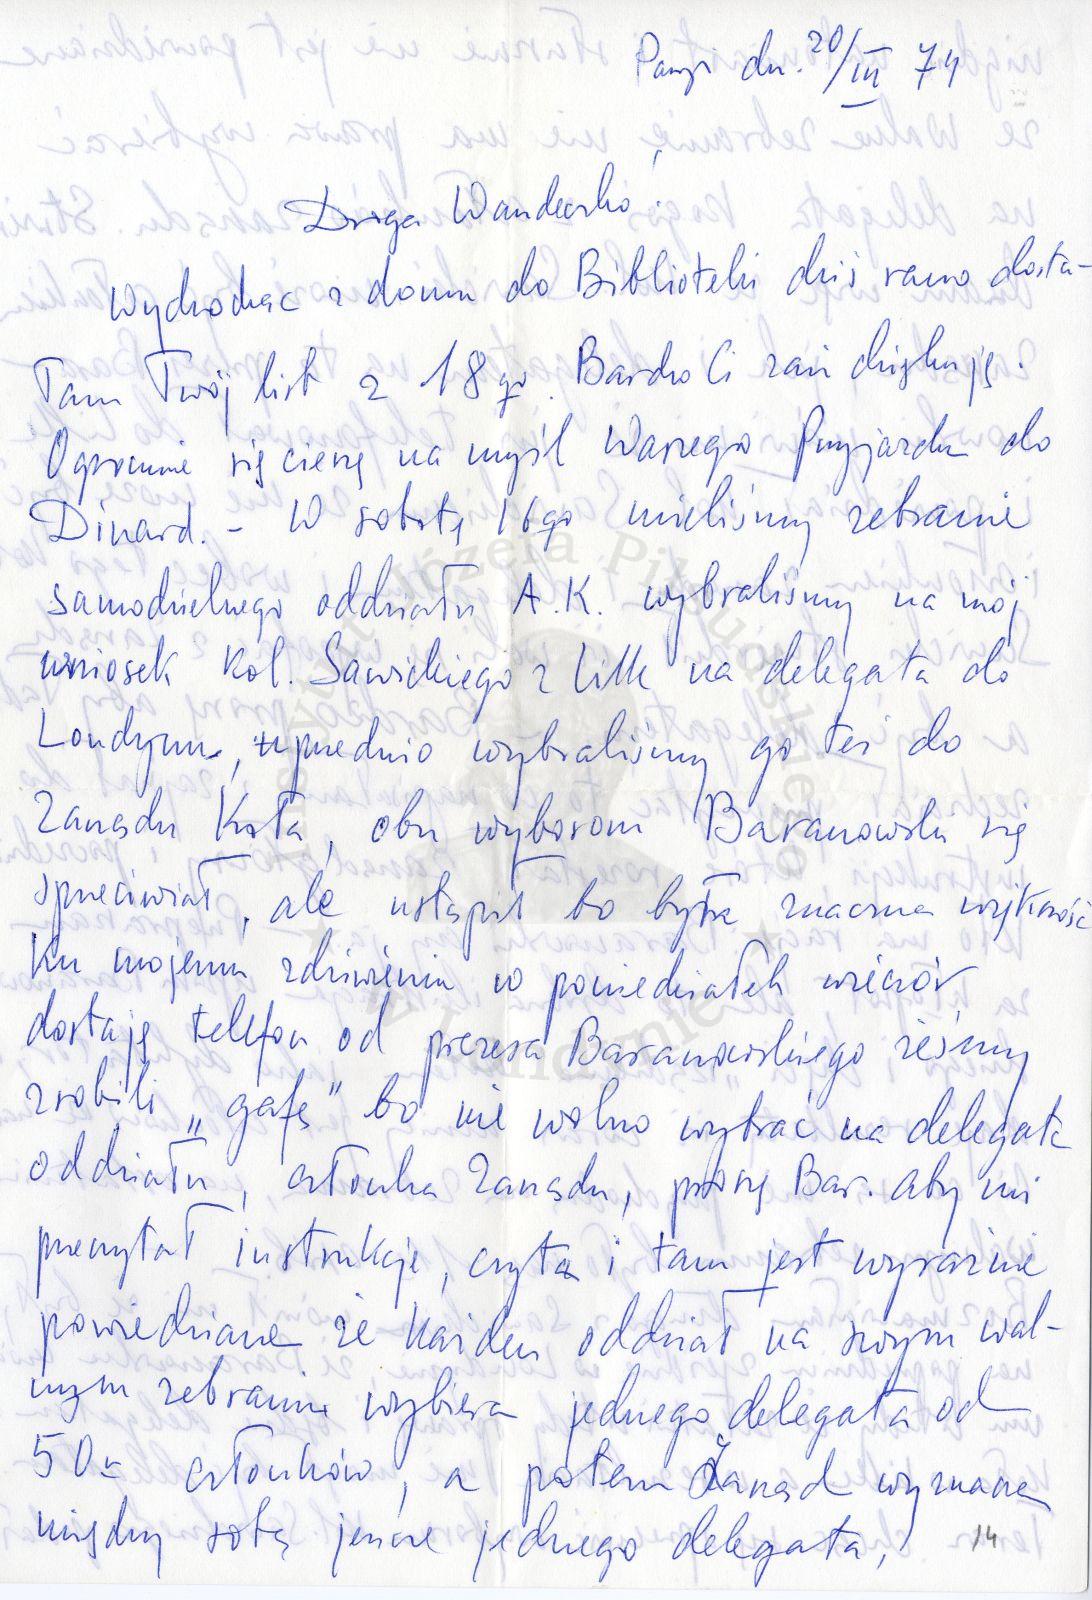 Paryż dn. 20/III 74
Droga Wandeczko!
Wychodząc z domu do Biblioteki dziś rano dosta-
łam Twój list z 18go. Bardzo Ci zań dziękuję.
Ogromnie się cieszę na myśl Waszego Przyjazdu do
Dinard. – W sobotę 16go mieliśmy zebranie
samodzielnego oddziału A.K. wybraliśmy na mój
wniosek kol. Sawickiego z Lille na delegata do
Londynu, uprzednio wybraliśmy go też do
Zarządu Koła, obu wyborom Baranowski się
sprzeciwiał, ale ustąpił bo była znaczna większość
Ku mojemu zdziwieniu w poniedziałek wieczór
dostaję telefon od prezesa Baranowskiego żeśmy
zrobili „gafę" bo nie wolno wybrać na delegata
oddziału, członka Zarządu, proszę Bar. aby mi
przeczytał instrukcje, czyta i tam jest wyraźnie
powiedziane że każden oddział na swym wal-
nym zebraniu wybiera jednego delegata od
50u członków, a potem Zarząd wyznacza
między sobą jeszcze jednego delegata,
14
Instytut Józefa Piłsudskiego
w Londynie